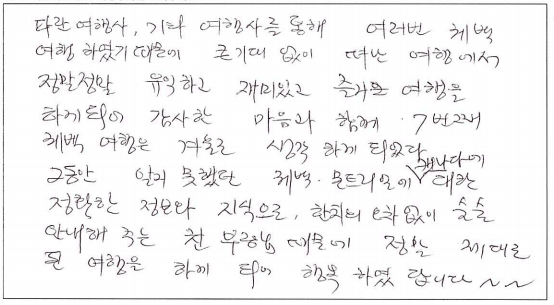 타란 여행사, 기타 여행사를 통해 여러번 퀘백
여행 하였기 때문에 큰기대 없이 떠난 여행에서
정말정말 유익하고 재미있고 즐거운 여행을
하게 되어 감사한 마음과 함께. 7번째
퀘백 여행은 겨울로 생각 하게 되었다
그동안 알지 못했던 퀘백. 몬트리얼에 캐나다에 대한
정확한 정보와 지식으로, 한치의 오차 없이 술술
안내해 주는 천 부장님 때문에 정말 제대로
된 여행을 하게 되어 행복 하였 답니다 ~~